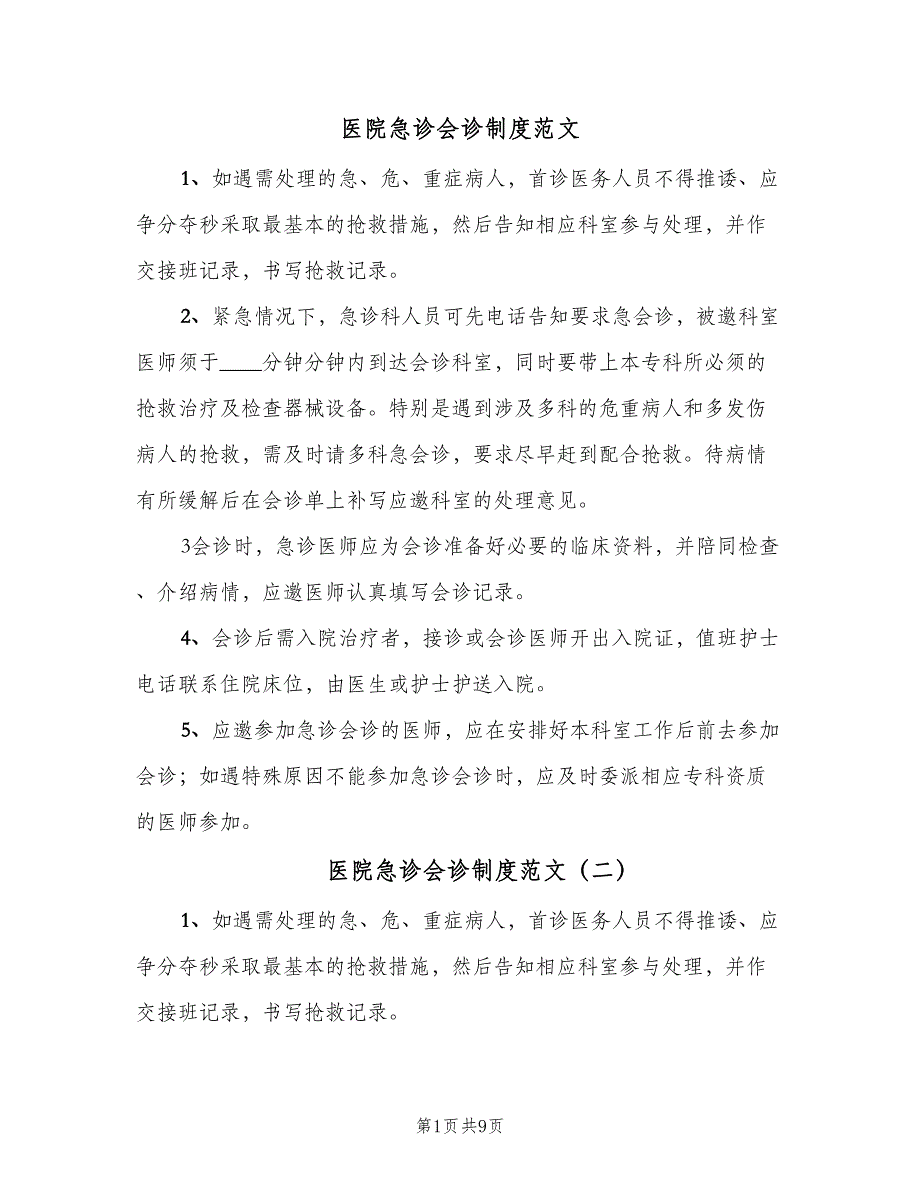 医院急诊会诊制度范文
1、如遇需处理的急、危、重症病人，首诊医务人员不得推诿、应
争分夺秒采取最基本的抢救措施，然后告知相应科室参与处理，并作
交接班记录，书写抢救记录。
2、紧急情况下，急诊科人员可先电话告知要求急会诊，被邀科室
医师须于____分钟分钟内到达会诊科室，同时要带上本专科所必须的
抢救治疗及检查器械设备。特别是遇到涉及多科的危重病人和多发伤
病人的抢救，需及时请多科急会诊，要求尽早赶到配合抢救。待病情
有所缓解后在会诊单上补写应邀科室的处理意见。
3会诊时，急诊医师应为会诊准备好必要的临床资料，并陪同检查
、介绍病情，应邀医师认真填写会诊记录。
4、会诊后需入院治疗者，接诊或会诊医师开出入院证，值班护士
电话联系住院床位，由医生或护士护送入院。
5、应邀参加急诊会诊的医师，应在安排好本科室工作后前去参加
会诊；如遇特殊原因不能参加急诊会诊时，应及时委派相应专科资质
的医师参加。
医院急诊会诊制度范文（二）
1、如遇需处理的急、危、重症病人，首诊医务人员不得推诿、应
争分夺秒采取最基本的抢救措施，然后告知相应科室参与处理，并作
交接班记录，书写抢救记录。
第1页 共9页